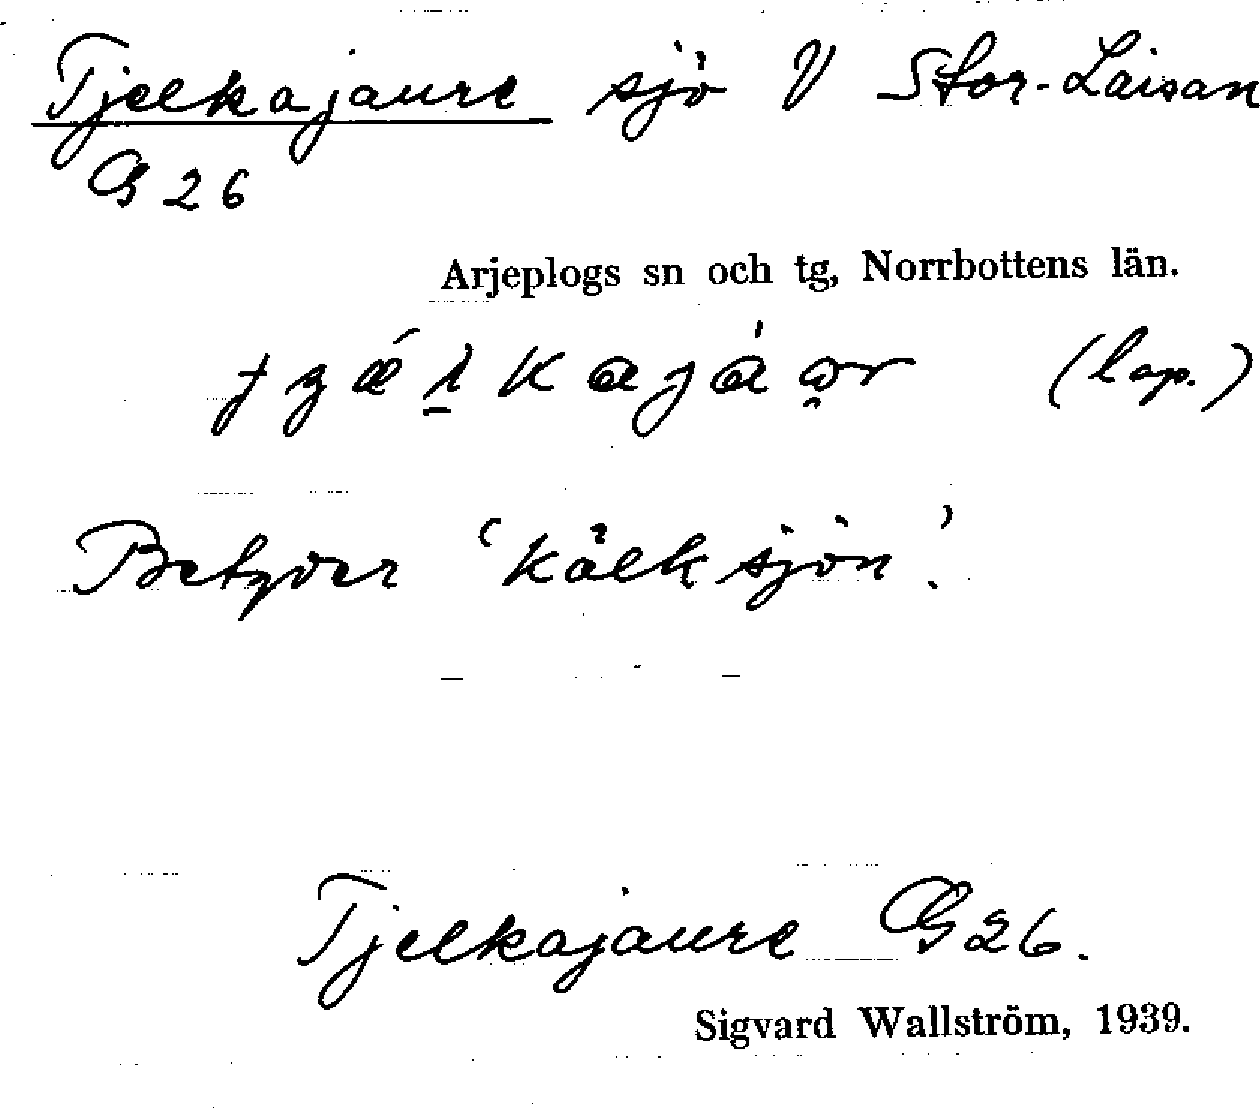 Tjelkajaure sjö V Stor-Laisan
G 26
Arjeplogs sn och tg, Norrbottens län.
(lap.)
Betyder 'Kälksjön'.
Tjelkajaure G 26.
Sigvard Wallström, 1939.